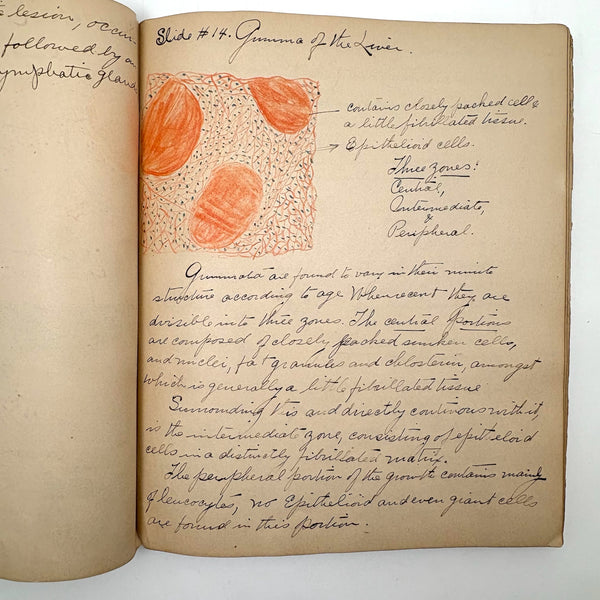 lesion, occur-
followed by an
lymphatic glands
Slide #14. Gumma of the Liver.
contains closely packed cells &
a little fibrillated tissue.
Epithelioid cells.
Three zones:
Central,
Intermediate,
&
Peripheral.
Gummata are found to vary in their minute
structure according to age When recent they are
divisible into three zones. The central portions
are composed of closely packed sunken cells,
and nuclei, fat granules and chlosterin, amongst
which is generally a little fibrillated tissue
Surrounding this and directly continous with it,
is the intermediate zone, consisting of epitheloid
cells in a distinctly fibrillated matrix.
The peripheral portion of the growth contains mainly
of leucocytes, no Epithelioid and even giant cells
are found in this portion.